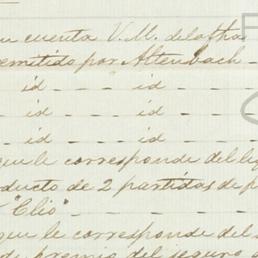 en cuenta V. M. de la fha
remitido por Altenbach -
id - - - " id - - -
id - - - - id - - -
id - - - - id - - -
que le corresponde del
producto de 2 partidas de
"Clio" - - - - - - -
que le corresponde del
premio del seguro